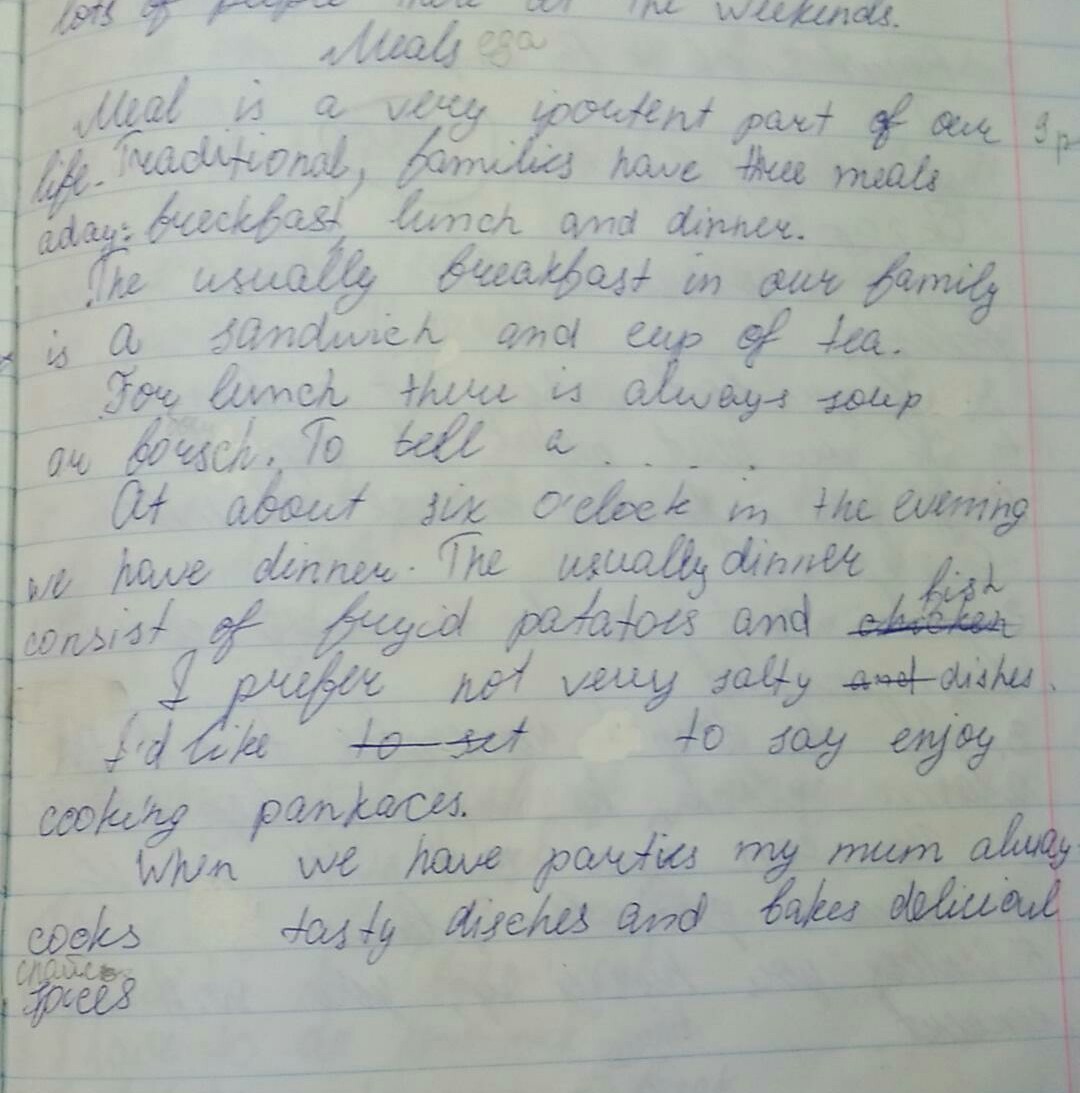 lots of people there at the weekends.
Meals еда
Meal is a very iportent part of our
life. Traditional, families have three meals
aday: breckfast, lunch and dinner.
The usually breakfast in our family
is a sandwich and cup of tea.
For lunch there is always soup
or borsch. To tell a . . . . .
At about six o'clock in the evening
we have dinner. The usually dinner
fish
consist of fryid patatoes and chicken
I prefer not very salty and dishes.
I'd like to set to say enjoy
cooking pankaces.
When we have parties my mum alway
cocks tasty disches and bakes